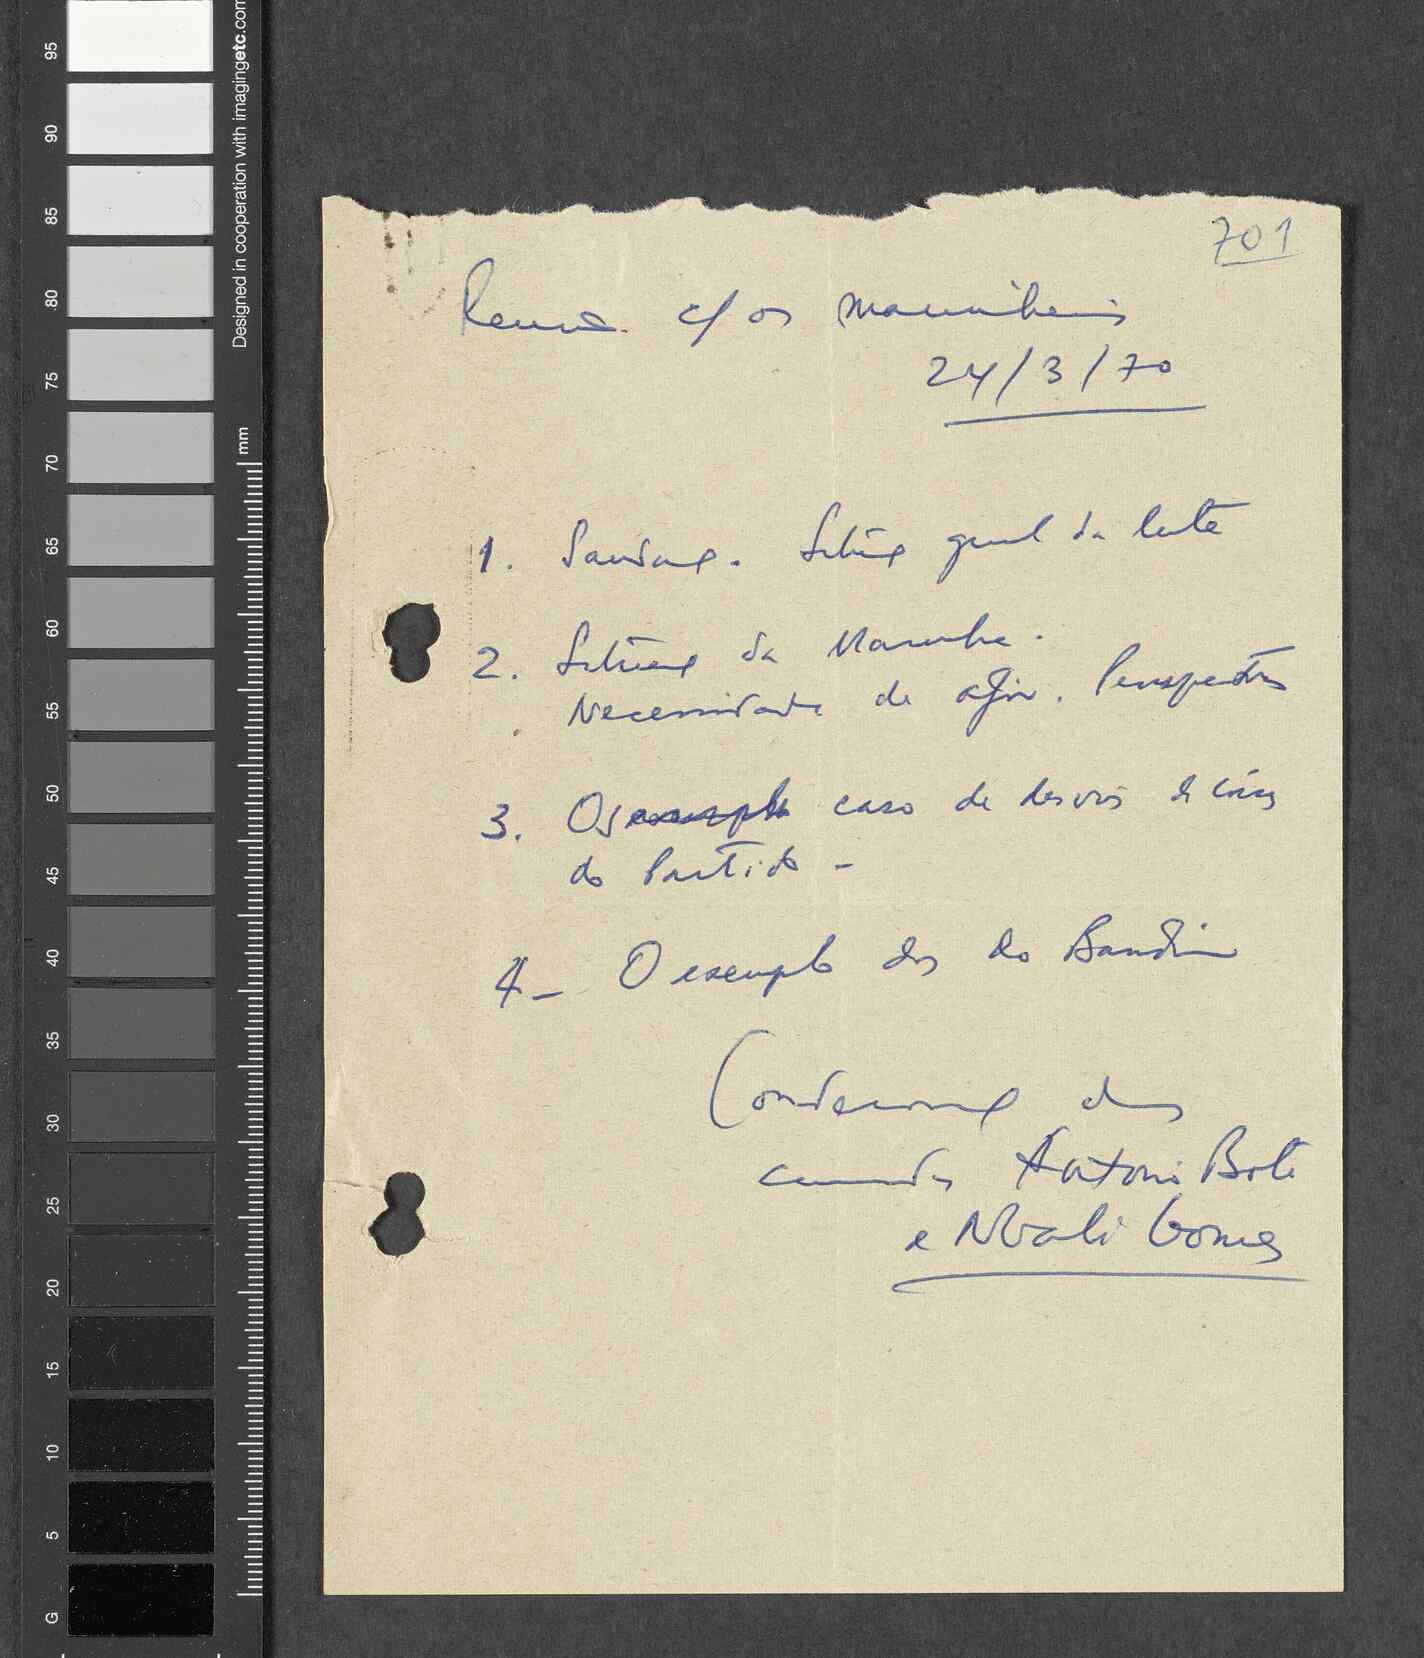 701
Reunião c/ os marinheiros
24/3/70
1. Saudação. Situação geral da luta
2. Situação da Marinha.
Necessidade de agir. Perspectivas
3. Os caso de desvios de coisas
do Partido -
4 - O exemplo dos do Bandim
Condenação dos
camaradas António Boté
e Nbali Gomes
95
90
85
80
75
70
65
60
55
50
45
40
35
30
25
20
15
10
5
G
Designed in cooperation with imagingetc.com
mm